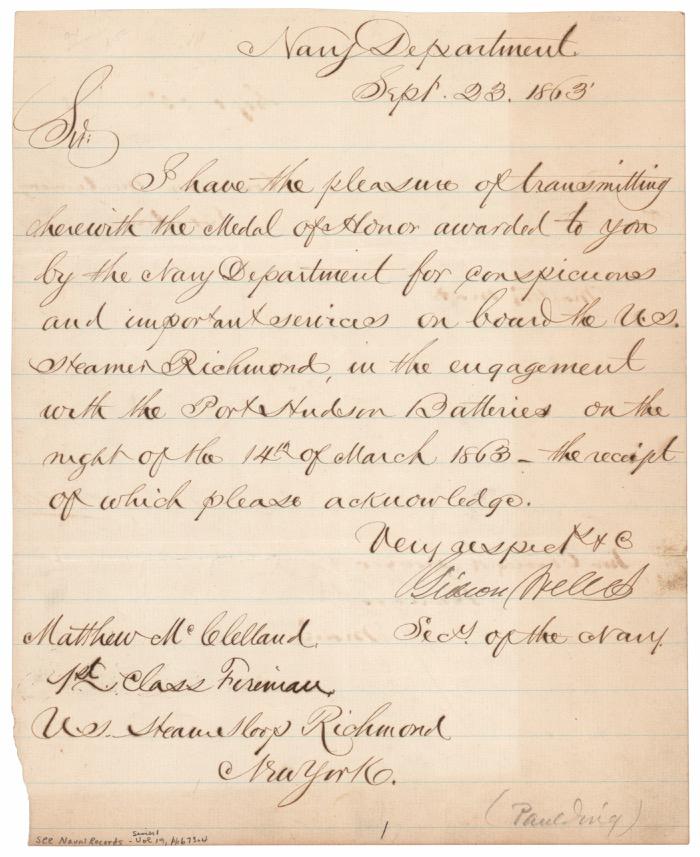 Navy Department.
Sept. 23. 1863
Sir:
I have the pleasure of transmitting
herewith the Medal of Honor awarded to you
by the Navy Department for conspicuous
and important services on board the U.S.
Steamer Richmond, in the engagement
with the Port Hudson Batteries on the
night of the 14th of March 1863 - the receipt
of which please acknowledge.
Very respect'y &C
Gideon Welles
Secy. of the Navy.
Matthew McClelland.
1st. Class Fireman.
U.S. Steam Sloop Richmond
New York.
(Paulding)
See Naval Records - Series 1 Vol 19,
1